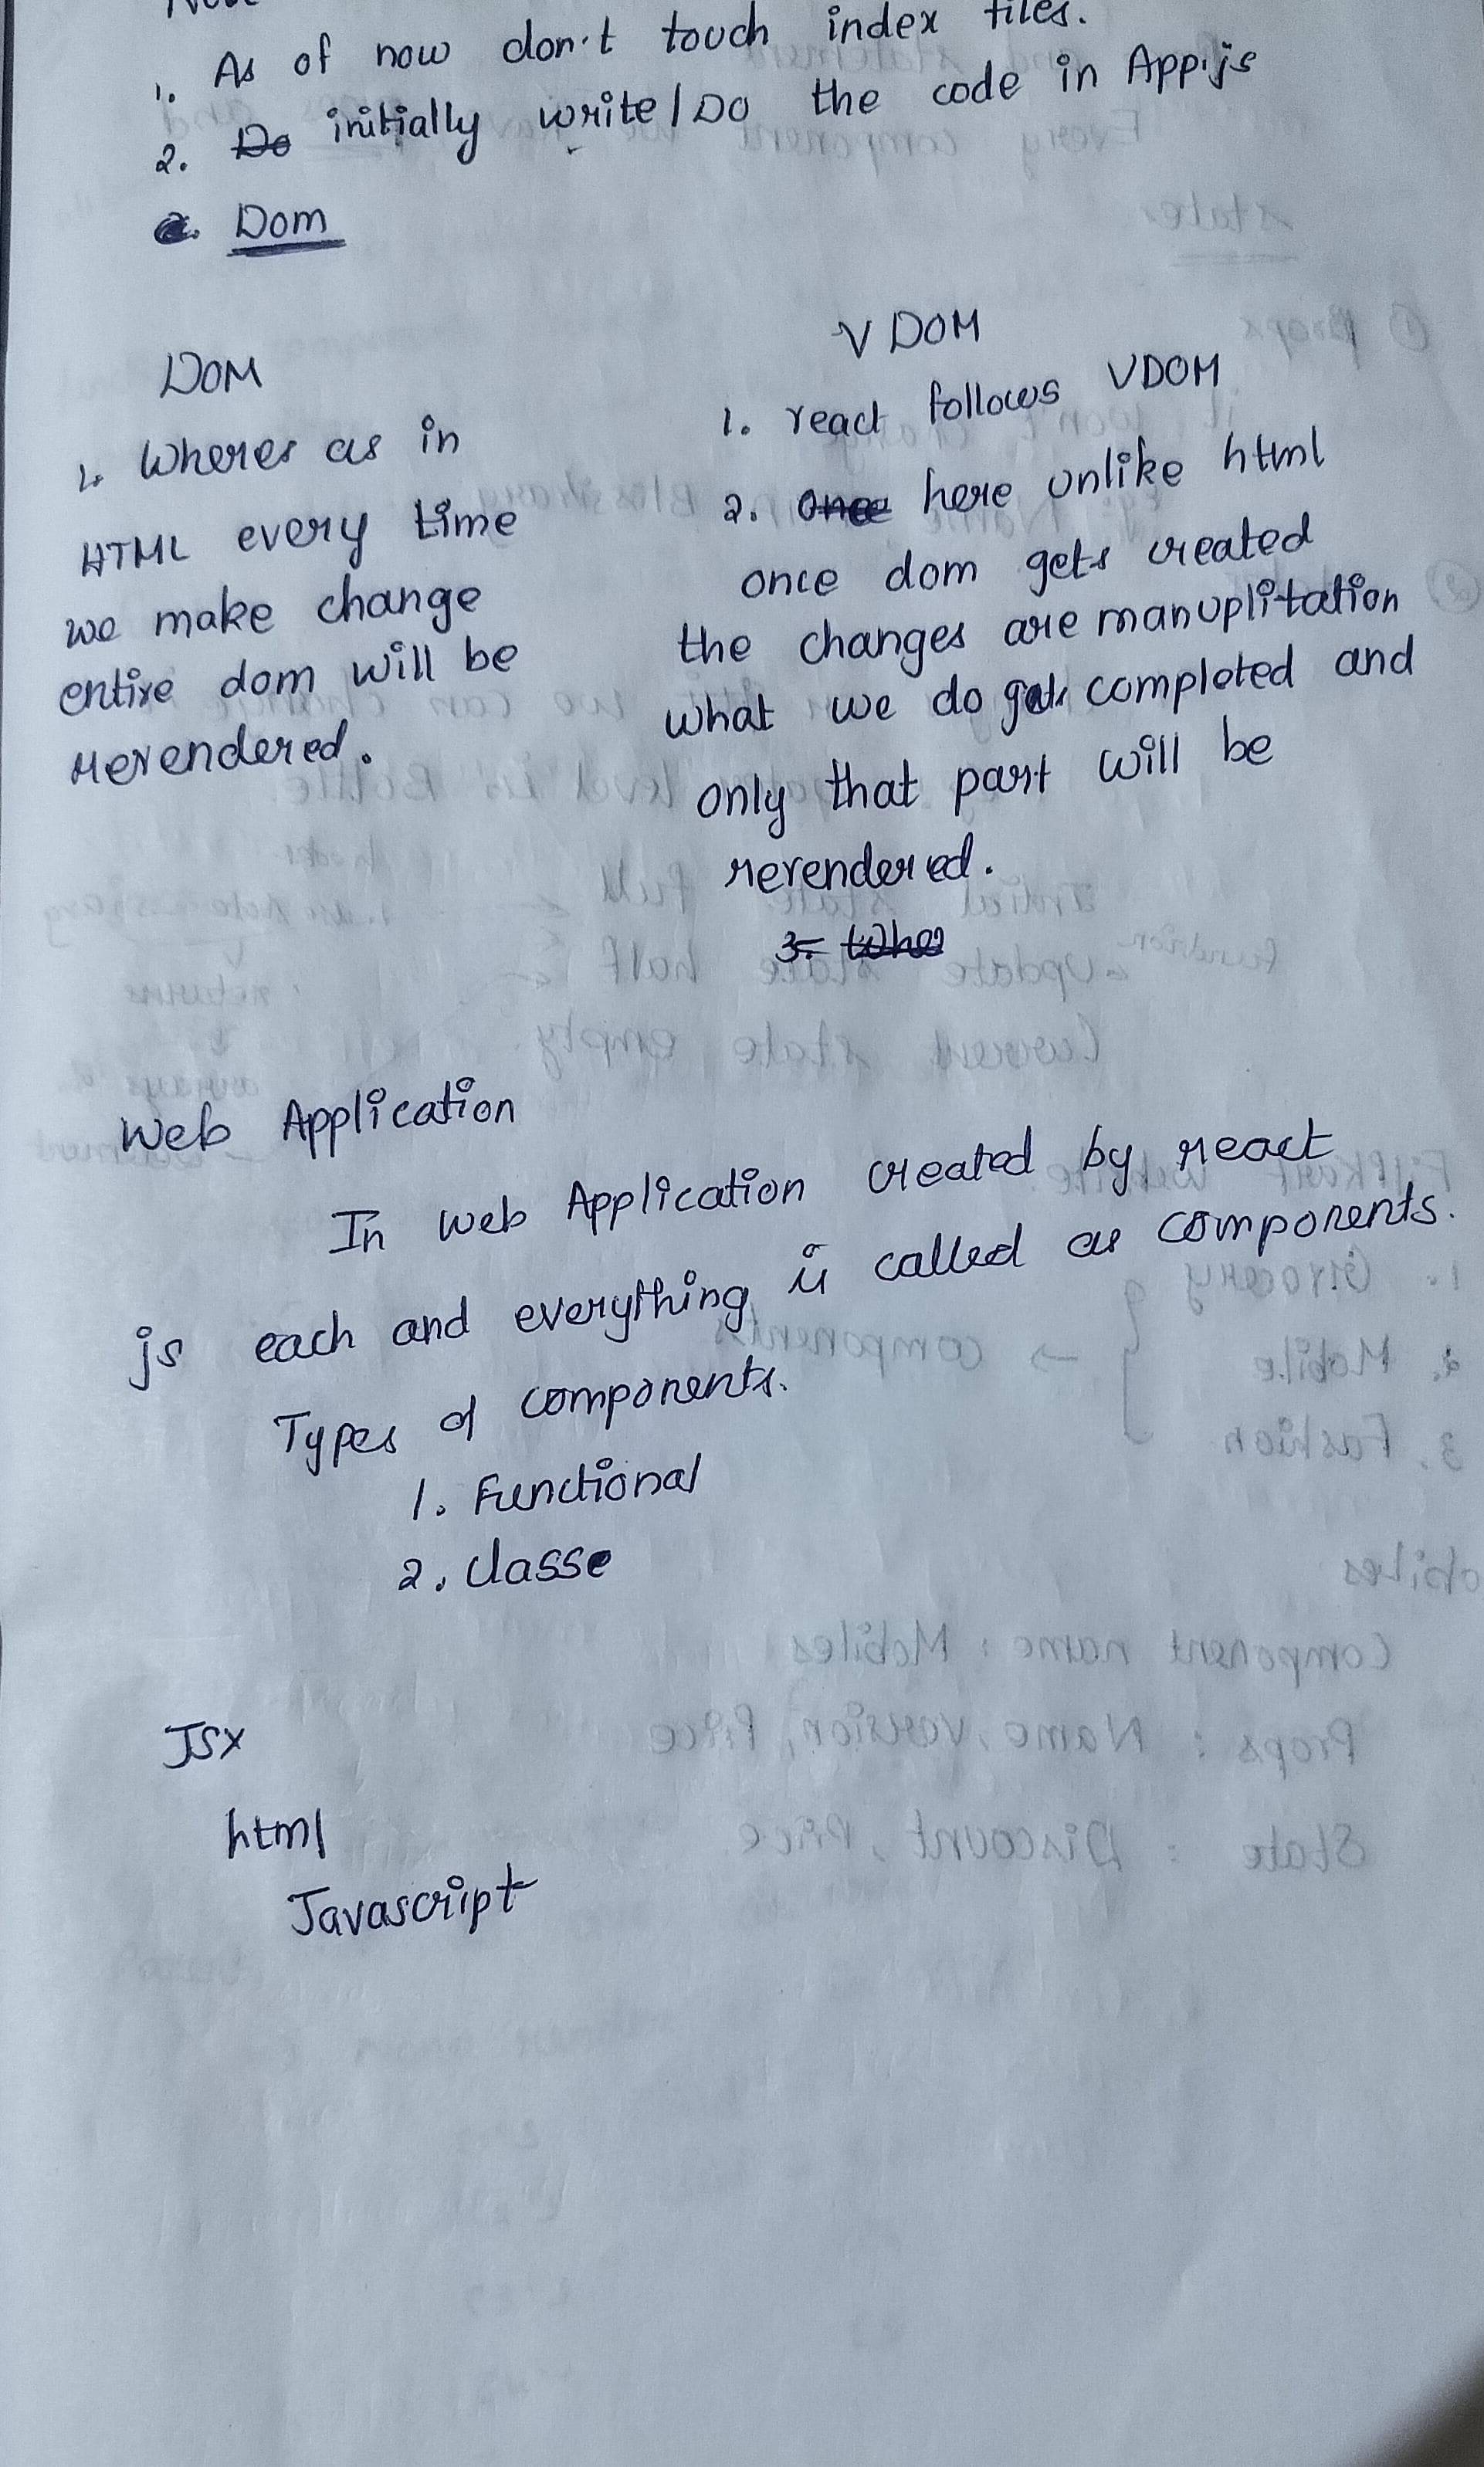 1. As of now don't touch index files.
2. Do initially write/Do the code in App.js
Dom
DOM
1. Wheres as in
HTML every time
we make change
entire dom will be
rerendered.
V DOM
1. react follows VDOM
2. Once here unlike html
once dom gets created
the changes are manuplitation
what we do gets completed and
only that part will be
rerendered.
3. Whe
Web Application
In web Application created by react
js each and everything is called as components.
Types of components.
1. Functional
2. Classe
JSX
html
Javascript